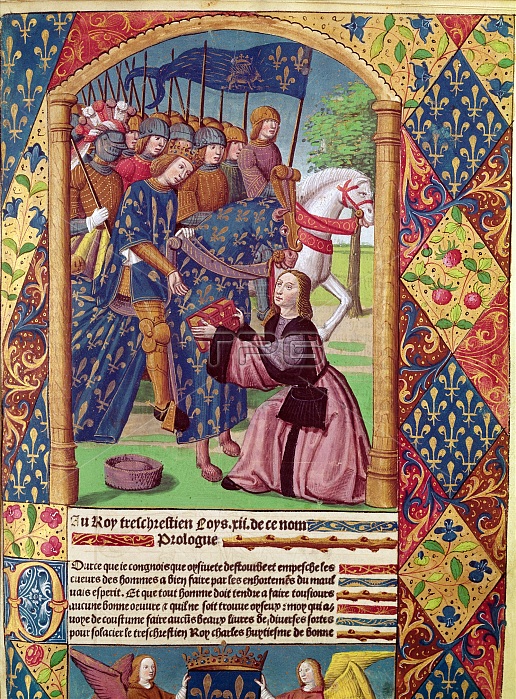 Au Roy treschrestien Loys.xii.de ce nom
Prologue
Parce que ie congnois que oysiuete destourbe et empesche les
cueurs des hommes a bien faire par les enhortemens du maul
uais esperit. Et que tout homme doit tendre a faire tousiours
aucune bonne oeuure & quil ne soit trouue oyseux; moy qui a,
uoye de coustume faire aucuns beaux liures de diuerses sortes
pour solacier le treschrestien Roy charles huytiesme de bonne